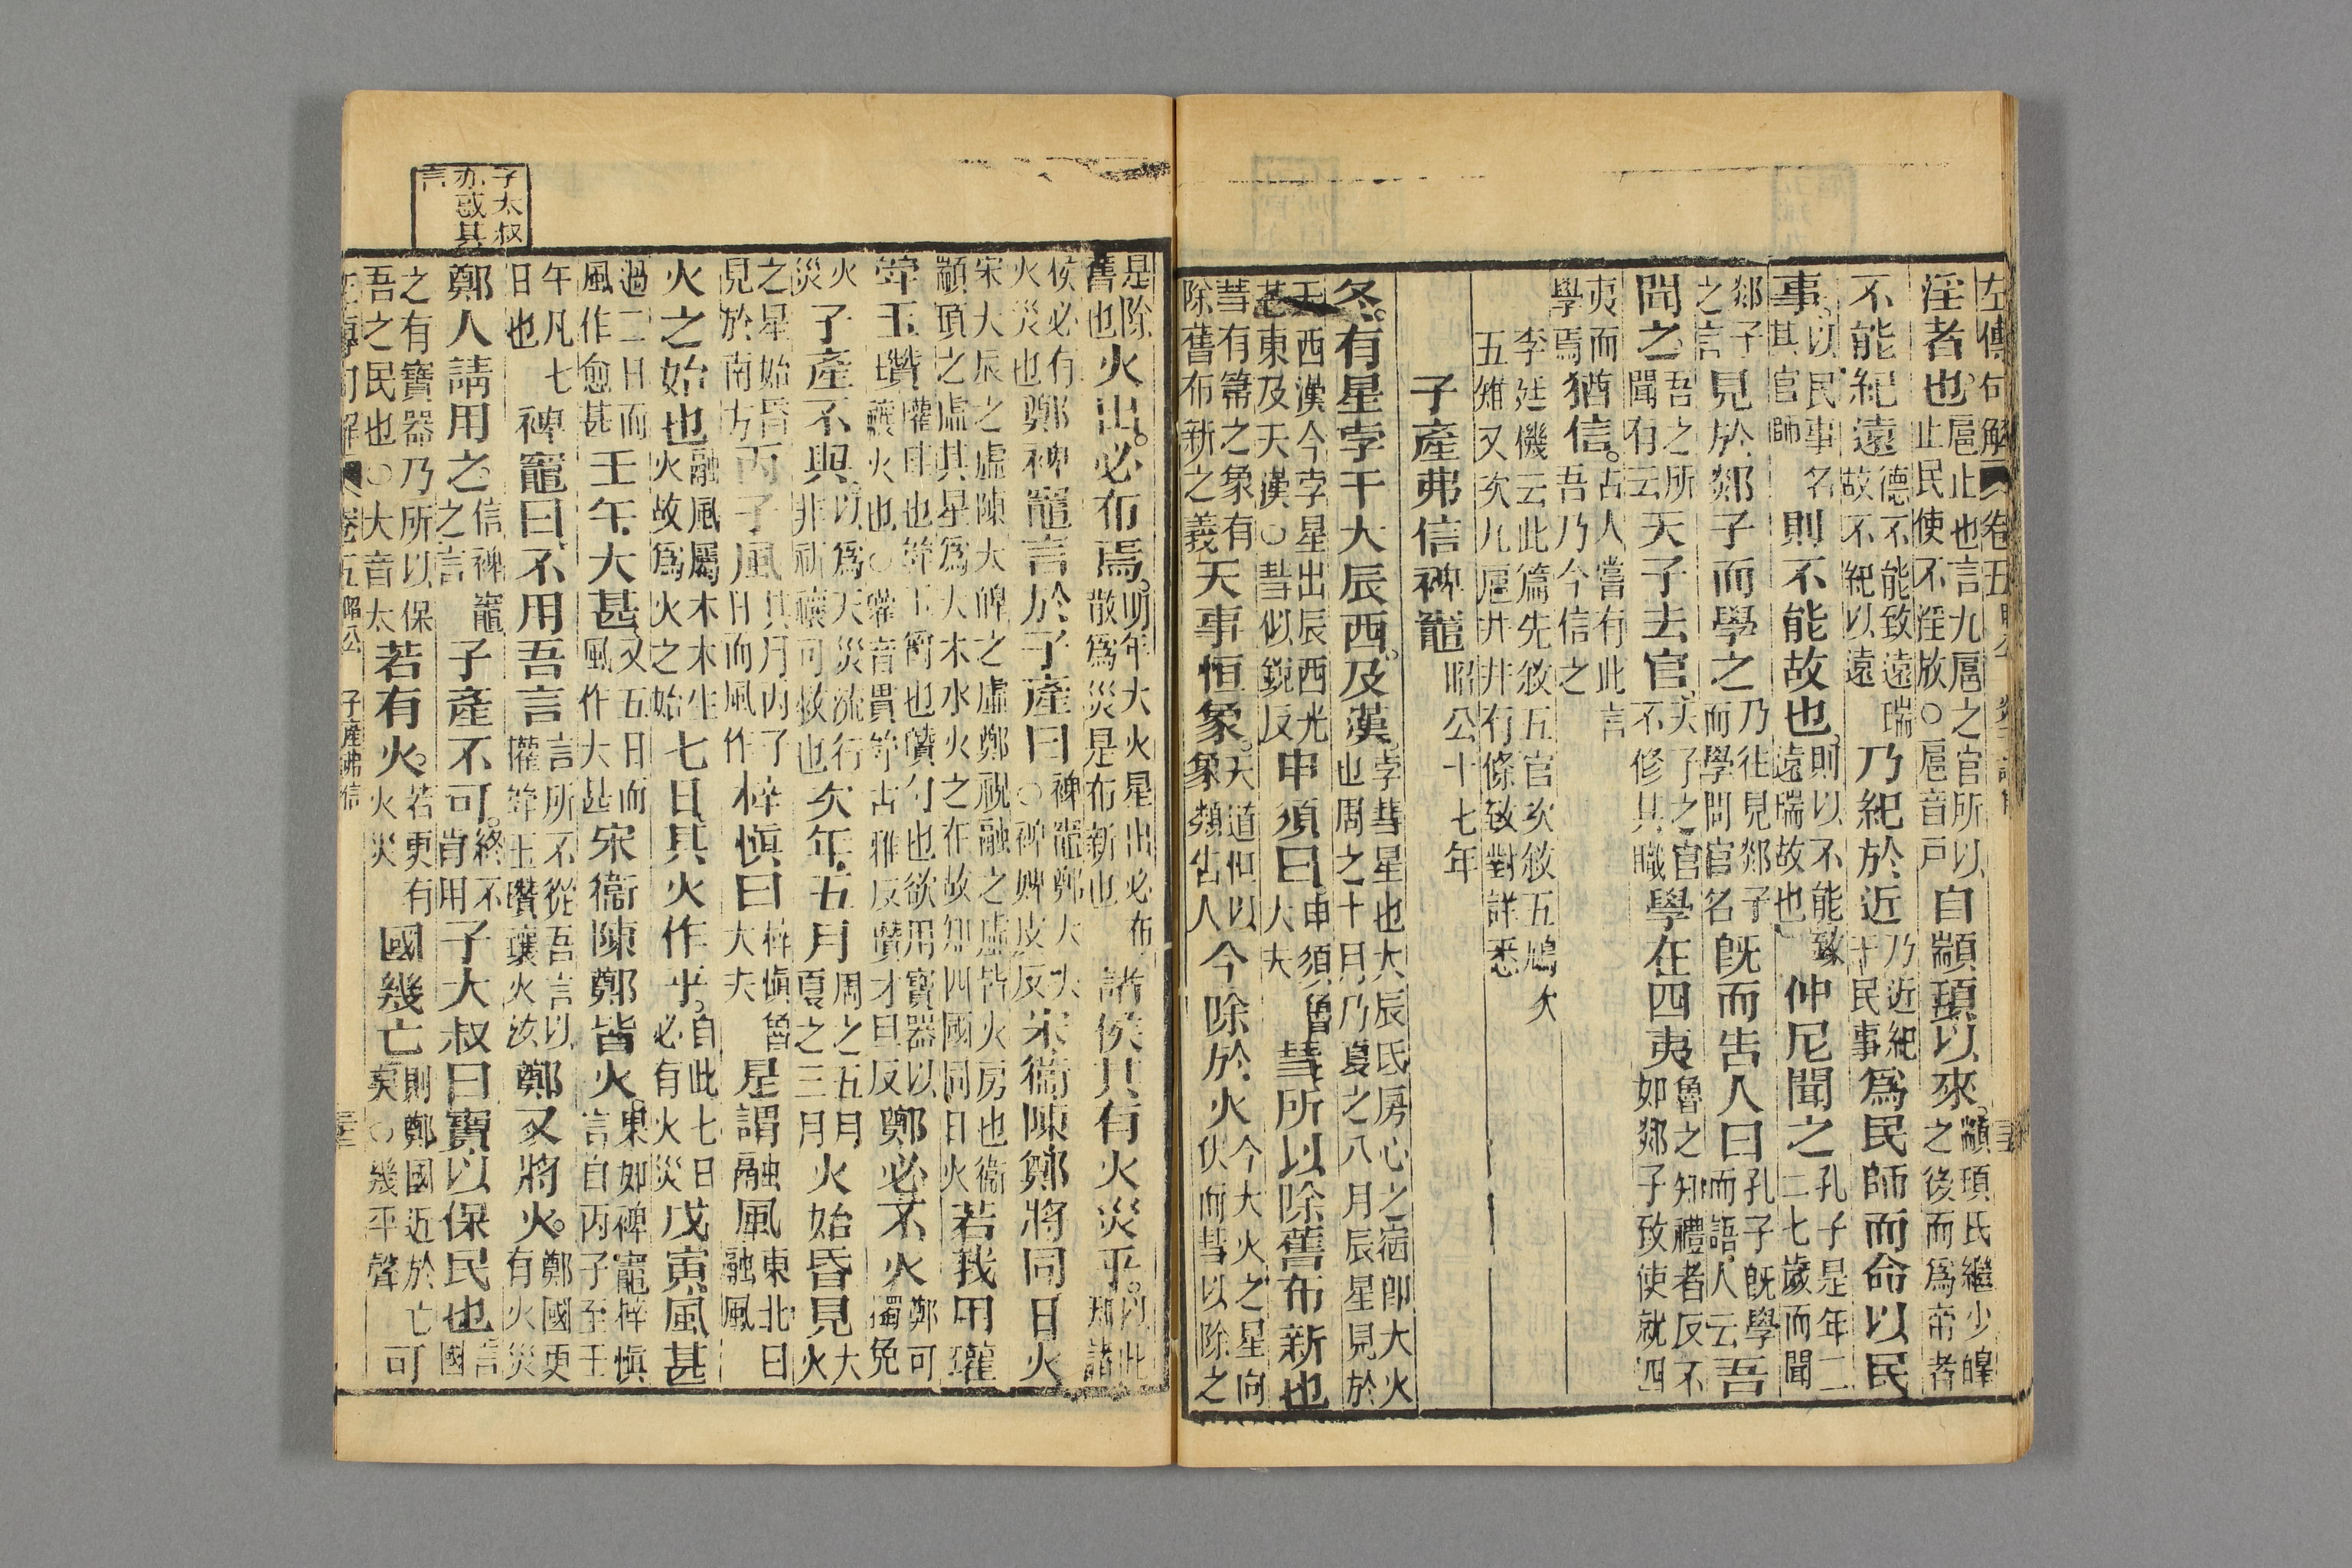 左傳句解 卷五 昭公
淫者也。扈止也言九扈之官所以止民使不淫放○扈音戶自顓頊以來。顓頊氏繼少皞之後而爲帝者
不能紀遠德不能致遠瑞故不紀以遠乃紀於近乃近紀于民事爲民師而命以民
事。以民事名其官師則不能故也。則以不能致遠瑞故也仲尼聞之孔子是年二二七歲而聞
郯子之言見於郯子而學之乃往見郯子而學問官名旣而告人曰孔子旣學而語人云吾
聞之吾之所聞有云天子去官。天子之官不修其職學在四夷魯之知禮者反不如郯子致使就四
夷而學焉猶信。古人嘗有此言吾乃今信之
李廷機云此篇先敘五官次敘五鳩次
五雉又次九扈井井有條致對詳悉
子產弗信裨竈 昭公十七年
冬。有星孛于大辰西。及漢。孛彗星也大辰氐房心之宿卽大火也周之十月乃夏之八月辰星見於
天西漢今孛星出辰西光芒東及天漢○彗似銳反申須曰申須魯大夫彗所以除舊布新也
彗有箒之象有除舊布新之義天事恒象。天道但以象類告人今除於火今大火之星向伏而彗以除之
是除舊也火出。必布焉。明年大火星出必布散爲災是布新也諸侯其有火災乎。以此知諸
侯必有火災也鄭裨竈言於子產曰裨竈鄭大夫○裨婢皮反宋衞陳鄭將同日火
宋大辰之虛陳大皥之虛鄭祝融之虛皆火房也衞顓頊之虛其星爲大水水火之在故知四國同日火若我用瓘
斝玉瓚瓘珪也斝玉爵也瓚勺也欲用寶器以禳火也○瓘音貫斝古雅反瓚才旦反鄭必不火鄭可獨免
火災子產不與。以爲天災流行非祈禳可救也次年五月周之五月夏之三月火始昏見大火
之星始昏見於南方丙子風其月丙子日而風作梓愼曰梓愼魯大夫是謂融風東北曰融風
火之始也融風屬木木生火故爲火之始七日其火作乎。自此七日必有火災戊寅風甚
過二日而風作愈甚壬午大甚又五日而風作大甚宋衞陳鄭皆火。果如裨竈梓愼言自丙子至壬
午凡七日也裨竈曰不用吾言言所不從吾言以瓘斝玉瓚禳火災鄭又將火。鄭國更有火災
鄭人請用之信裨竈之言子產不可。終不肯用子大叔曰寶以保民也言國
之有寶器乃所以保吾之民也○大音太若有火。若更有火災國幾亡則鄭國近於亡矣○幾平聲可
左傳句解 卷五 昭公 子產弗信
子太叔亦惑其言